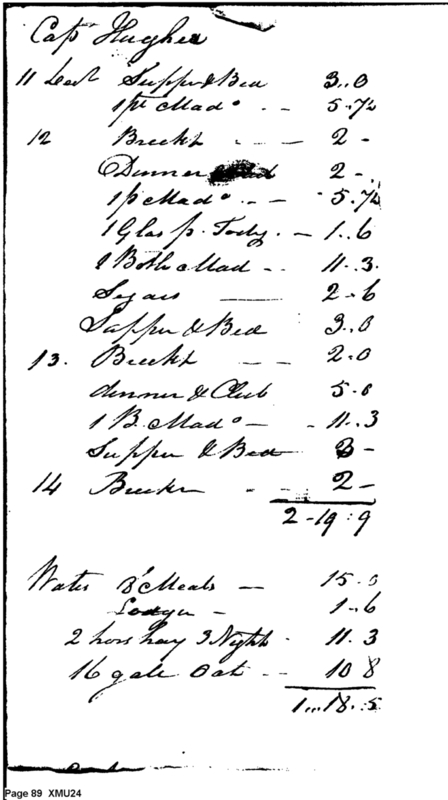 Cap Hughes
11 Dec Supper & Bed 3..0
1 pt Mado - - 5.7½
12 Breckt - - 2 -
Dinner 2 -
1 p Mado - - 5.7½
1 Glas p. Tody. - 1..6
1 Bottle Mad - - 11..3.
Segars 2..6
Supper & Bed 3..0
13. Breckt - - 2.0
dinner & Club 5.0
1 B. Mado - - 11..3
Supper & Bed 3 -
14 Breckt - - 2 -
2 - 19 : 9
8 Meals - 15.0
Lodgn - 1..6
2 hors hay 3 Night - 11.3
16 galls Oats - - 10 8
1...18..5
Page 89 XMU24